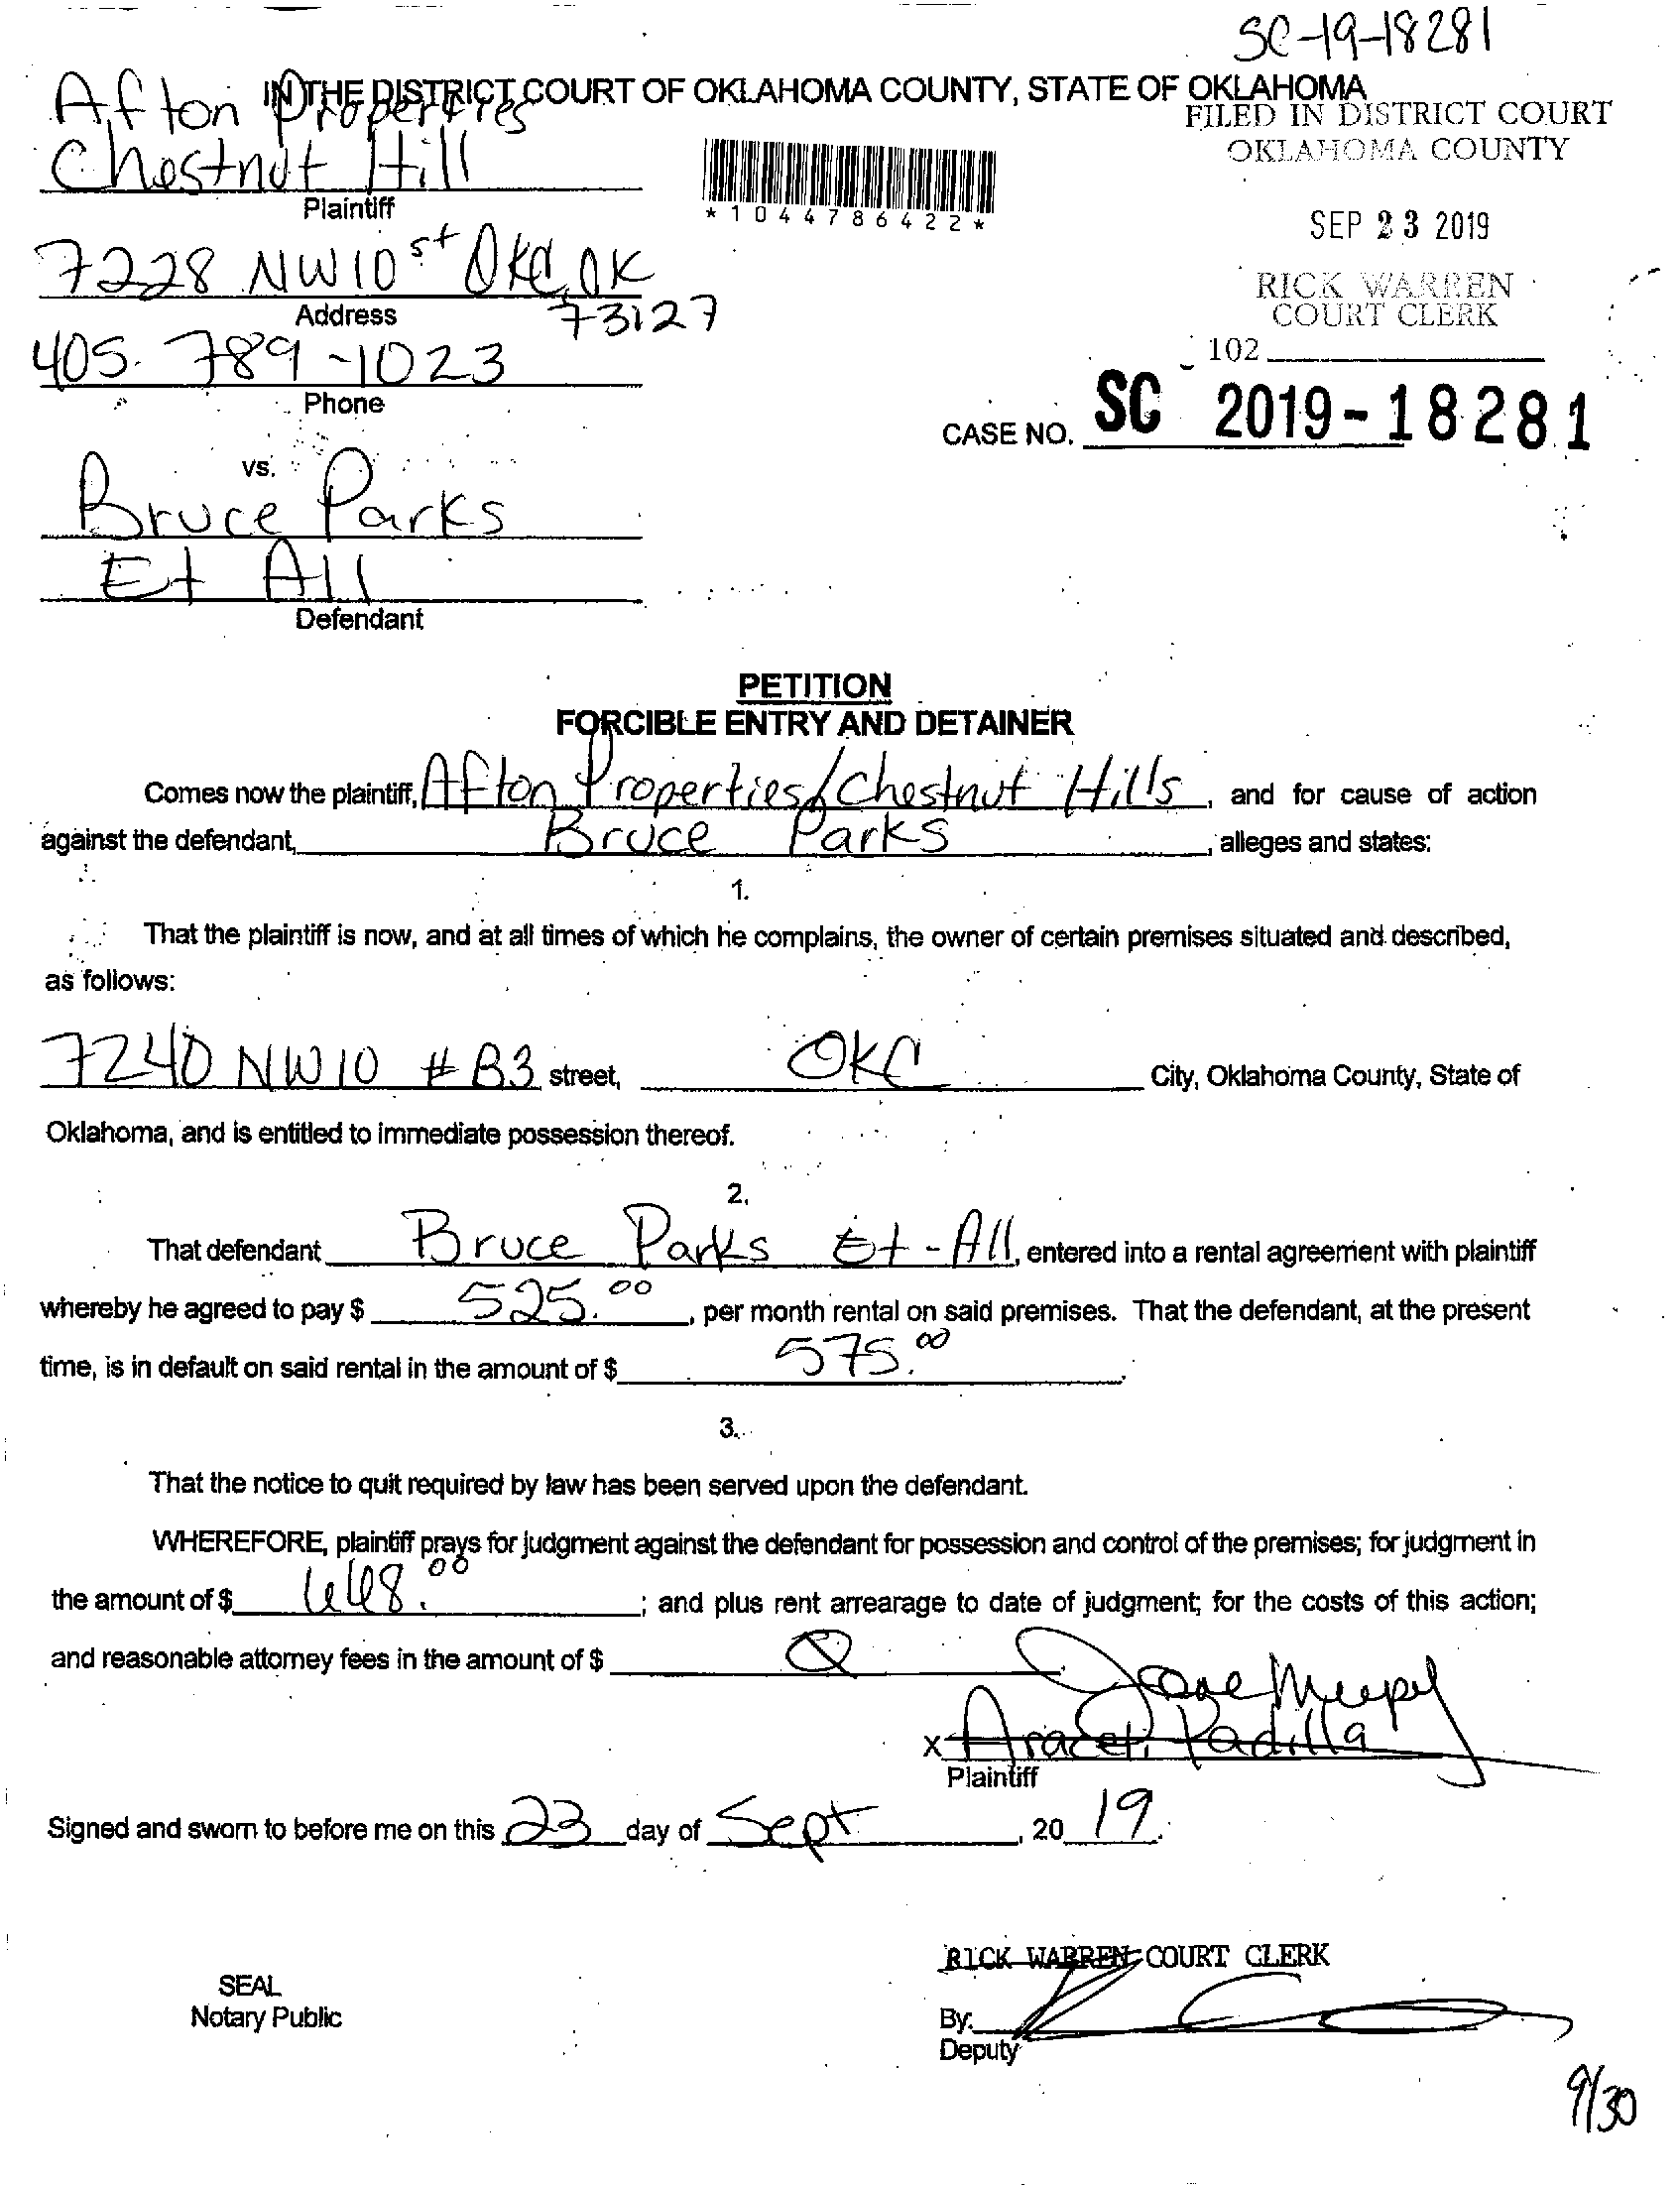 SC-19-18281
IN THE DISTRICT COURT OF OKLAHOMA COUNTY, STATE OF OKLAHOMA
Afton Properties
Chestnut Hill
Plaintiff
FILED IN DISTRICT COURT
OKLAHOMA COUNTY
*1044786422*
SEP 23 2019
7228 NW 10st OKC, OK
73127
Address
RICK WARREN
COURT CLERK
405-789-1023
Phone
102
CASE NO. SC 2019-18281
vs.
Bruce Parks
Et All
Defendant
PETITION
FORCIBLE ENTRY AND DETAINER
Comes now the plaintiff, Afton Properties/Chestnut Hills, and for cause of action
against the defendant, Bruce Parks, alleges and states:
1.
That the plaintiff is now, and at all times of which he complains, the owner of certain premises situated and described,
as follows:
7240 NW 10 # B3 street, OKC City, Oklahoma County, State of
Oklahoma, and is entitled to immediate possession thereof.
2.
That defendant Bruce Parks Et-All, entered into a rental agreement with plaintiff
whereby he agreed to pay $ 525.00, per month rental on said premises. That the defendant, at the present
time, is in default on said rental in the amount of $ 575.00.
3.
That the notice to quit required by law has been served upon the defendant.
WHEREFORE, plaintiff prays for judgment against the defendant for possession and control of the premises; for judgment in
the amount of $ 668.00; and plus rent arrearage to date of judgment; for the costs of this action;
and reasonable attorney fees in the amount of $
X Araceli Padilla
Plaintiff
Signed and sworn to before me on this 23 day of Sept, 20 19.
RICK WARREN COURT CLERK
SEAL
Notary Public
By:
Deputy
9/30